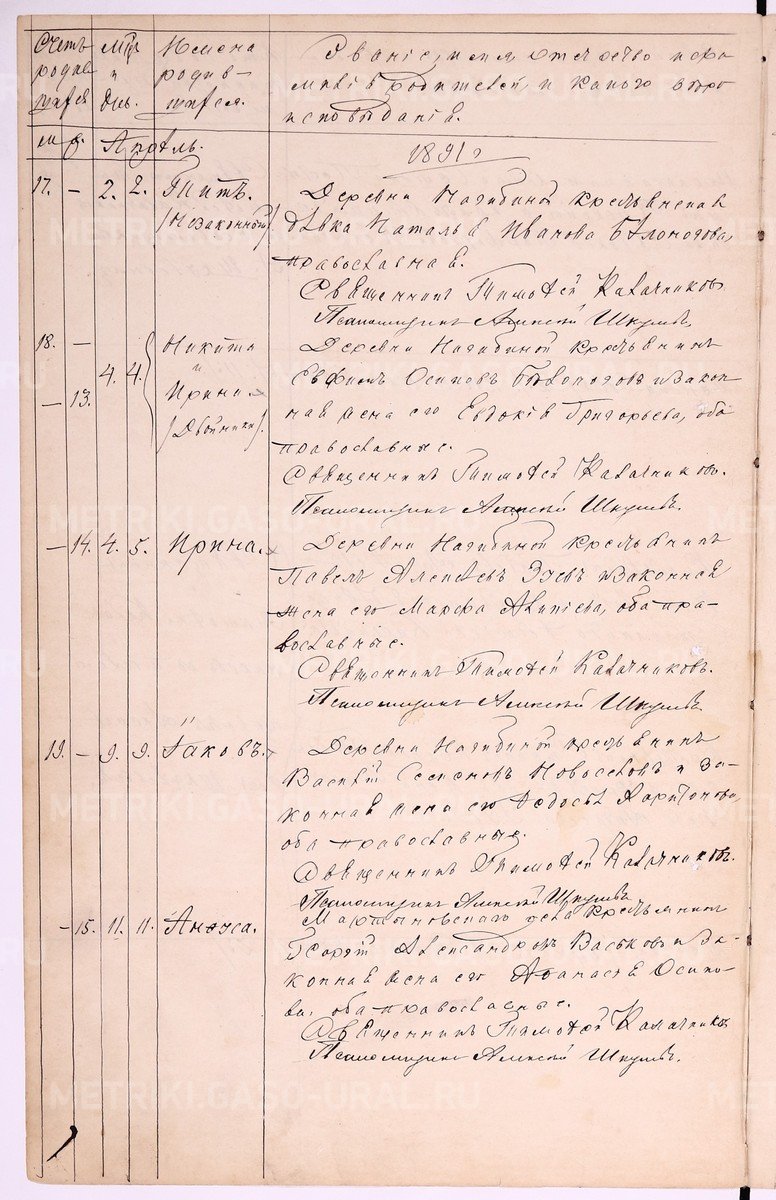 Счетъ родив-шихся
Мцъ и день.
Имена родив-шихся.
Званіе, имя, отчество и фа-
миліѣ родителей, и какого вѣро
исповѣданія.
м. ж. Апрѣль.
1891 г
17. — 2. 2. Титъ.
/Незаконной/
Деревни Нагибиной крестьянская
дѣвка Наталья Иванова Бѣлоногова,
православная.
Священникъ Тимофей Калачниковъ
Псаломщикъ Алексѣй Шкулевъ
18. —
— 13.
4. 4.
Никита
и
Ирина
/Двойники/.
Деревни Нагибиной крестьянинъ
Евфимъ Осиповъ Бѣлоноговъ и закон-
ная жена его Евдокія Григорьева, оба
православные.
Священникъ Тимофей Калачниковъ.
Псаломщикъ Алексѣй Шкулевъ.
— 14. 4. 5. Ирина.
Деревни Нагибиной крестьянинъ
Павелъ Алексѣевъ Зуевъ и законная
жена его Марфа, оба пра-
вославные.
Священникъ Тимофей Калачниковъ.
Псаломщикъ Алексѣй Шкулевъ
19. — 9. 9. Іаковъ.
Деревни Нагибиной крестьянинъ
Василій Семеновъ Новоселовъ и за-
конная жена его Ѳедосья Харитонова,
оба православные.
Священникъ Тимофей Калачниковъ.
Псаломщикъ Алексѣй Шкулевъ
— 15. 11. 11. Анѳуса.
Мартыновскаго села крестьянинъ
Георгій Александровъ Васьковъ и за-
конная жена его Афанасія Осипо-
ва, оба православные.
Священникъ Тимофей Калачниковъ
Псаломщикъ Алексѣй Шкулевъ.
METRIKI.GASO-URAL.RU